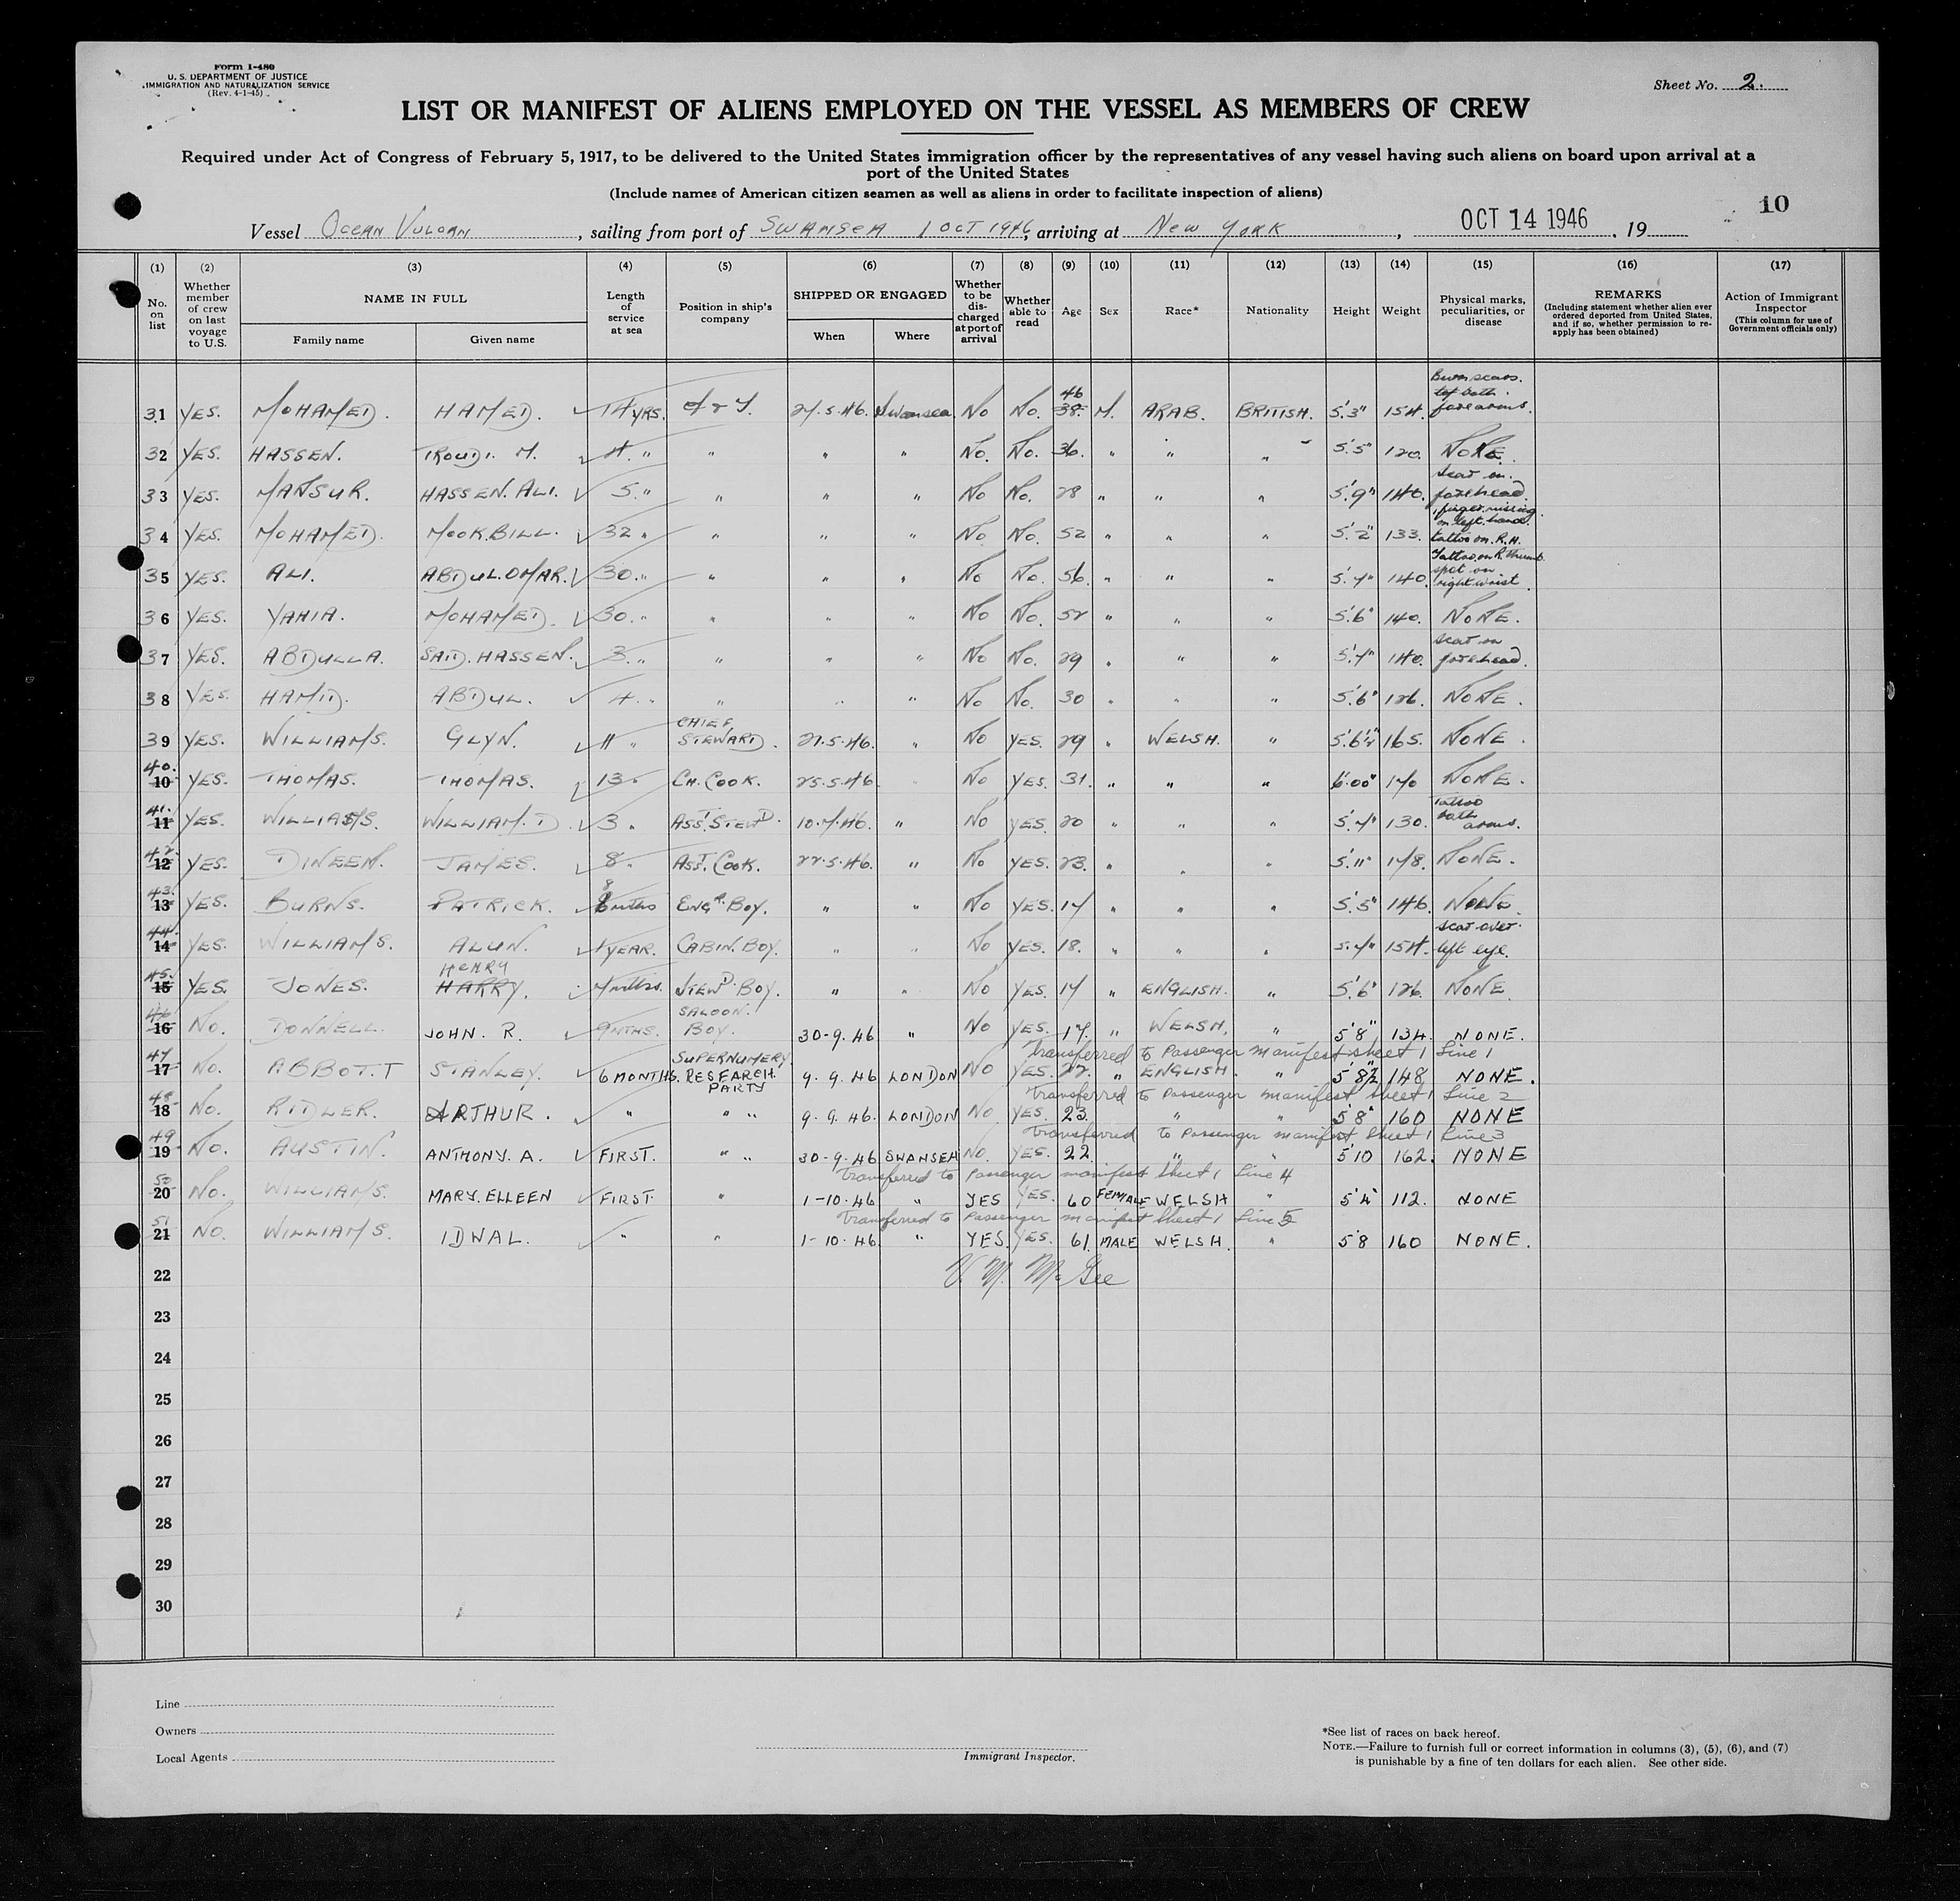 Form I-480
U. S. DEPARTMENT OF JUSTICE
IMMIGRATION AND NATURALIZATION SERVICE
(Rev. 4-1-45)
Sheet No. 2.
LIST OR MANIFEST OF ALIENS EMPLOYED ON THE VESSEL AS MEMBERS OF CREW
Required under Act of Congress of February 5, 1917, to be delivered to the United States immigration officer by the representatives of any vessel having such aliens on board upon arrival at a
port of the United States
(Include names of American citizen seamen as well as aliens in order to facilitate inspection of aliens)
10
Vessel OCEAN VULCAN, sailing from port of SWANSEA 1 OCT 1946, arriving at NEW YORK, OCT 14 1946, 19
(1) (2) (3) (4) (5) (6) (7) (8) (9) (10) (11) (12) (13) (14) (15) (16) (17)
No. on list
Whether member of crew on last voyage to U.S.
NAME IN FULL
Family name
Given name
Length of service at sea
Position in ship's company
SHIPPED OR ENGAGED
When
Where
Whether to be discharged at port of arrival
Whether able to read
Age
Sex
Race*
Nationality
Height
Weight
Physical marks, peculiarities, or disease
REMARKS
(Including statement whether alien ever ordered deported from United States, and if so, whether permission to reapply has been obtained)
Action of Immigrant Inspector
(This column for use of Government officials only)
31 YES. MOHAMED. HAMED. 14 YRS. F & T. 27.5.46. Swansea No No. 46 38 M. ARAB. BRITISH. 5'3" 154. Burn scars. both forearms.
32 YES. HASSEN. TROUDI. M. 4. " " " " No. No. 36. " " " 5'5" 120. NONE.
33 YES. MANSUR. HASSEN. ALI. 5. " " " " No No. 28 " " " 5'9" 140. Scar on forehead.
34 YES. MOHAMED. MOOK. BILL. 32 " " " " No No. 52 " " " 5'2" 133. 1 finger missing on left hand. tattoo on R.H.
35 YES. ALI. ABDUL. OMAR. 30. " " " " No No. 56. " " " 5'7" 140. Tattoo on R. Thumb. spot on right wrist.
36 YES. YAHIA. MOHAMED. 30. " " " " No No. 52 " " " 5'6" 140. NONE.
37 YES. ABDULLA. SAID. HASSEN. 3. " " " " No No. 29 " " " 5'7" 140. scar on forehead.
38 YES. HAMID. ABDUL. 4. " " " " No No. 30 " " " 5'6" 126. NONE.
39 YES. WILLIAMS. GLYN. 11 " CHIEF STEWARD. 27.5.46. " No YES. 29 " WELSH. " 5'6½" 165. NONE.
40. 10 YES. THOMAS. THOMAS. 13. CH. COOK. 25.5.46 " No YES. 31. " " " 6'00" 170 NONE.
41. 11 YES. WILLIAMS. WILLIAM. D. 3 " ASS. STEWD. 10.7.46. " No YES. 20 " " " 5'7" 130. Tattoo both arms.
42 12 YES. DINEEN. JAMES. 8 " ASST. COOK. 22.5.46. " No YES. 23. " " " 5'11" 178. NONE.
43. 13 YES. BURNS. PATRICK. 8 mths ENGR. BOY. " " No YES. 17 " " " 5'5" 146. NONE.
44 14 YES. WILLIAMS. ALUN. 1 YEAR. CABIN. BOY. " " No YES. 18. " " " 5'7" 154. scar over left eye.
45. 15 YES. JONES. HENRY HARRY. 7 mths. STEWD. BOY. " " No YES. 17 " ENGLISH. " 5'6" 126. NONE
46 16 No. DONNELL. JOHN. R. 9 MTHS. SALOON. BOY. 30-9.46 " No YES. 17. " WELSH. " 5'8" 134. NONE.
Transferred to Passenger manifest sheet 1 Line 1
47 17 No. ABBOTT STANLEY. 6 MONTHS. SUPERNUMERY RESEARCH PARTY 9.9.46 LONDON No YES. 22. " ENGLISH. " 5'8½ 148 NONE.
Transferred to Passenger manifest sheet 1 Line 2
48 18 No. RIDLER. ARTHUR. " " " 9.9.46. LONDON No YES. 23. " " 5'8" 160 NONE
Transferred to Passenger manifest sheet 1 Line 3
49 19 No. AUSTIN. ANTHONY. A. FIRST. " " 30-9.46 SWANSEA No. YES. 22 " " 5'10 162. NONE
Transferred to Passenger manifest sheet 1 Line 4
50 20 No. WILLIAMS. MARY. ELLEEN FIRST. " 1-10-46 " YES YES. 60 FEMALE WELSH " 5'4" 112. NONE
Transferred to Passenger manifest sheet 1 Line 5
51 21 No. WILLIAMS. IDWAL. " " 1-10.46. " YES. YES. 61. MALE WELSH. " 5'8 160 NONE.
22 V. M. McGee
23
24
25
26
27
28
29
30
Line
Owners
Local Agents
Immigrant Inspector.
*See list of races on back hereof.
NOTE.—Failure to furnish full or correct information in columns (3), (5), (6), and (7)
is punishable by a fine of ten dollars for each alien. See other side.